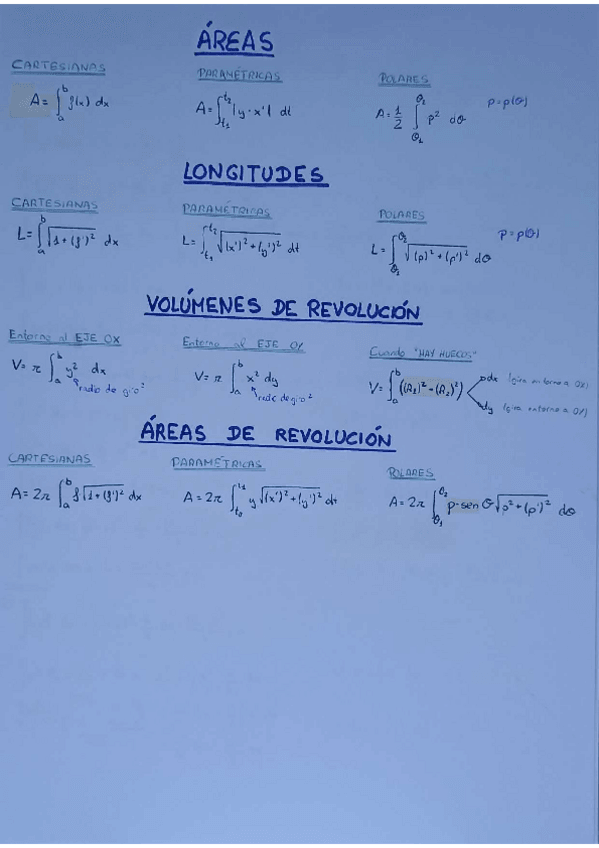 ÁREAS
CARTESIANAS
A = ∫_a^b f(x) dx
PARAMÉTRICAS
A = ∫_{t_1}^{t_2} |y · x'| dt
POLARES
A = 1/2 ∫_{θ_1}^{θ_2} ρ² dθ
ρ = ρ(θ)
LONGITUDES
CARTESIANAS
L = ∫_a^b √(1 + (f')²) dx
PARAMÉTRICAS
L = ∫_{t_1}^{t_2} √((x')² + (y')²) dt
POLARES
L = ∫_{θ_1}^{θ_2} √((ρ)² + (ρ')²) dθ
ρ = ρ(θ)
VOLÚMENES DE REVOLUCIÓN
Entorno al EJE OX
V = π ∫_a^b y² dx
radio de giro²
Entorno al EJE OY
V = π ∫_a^b x² dy
radio de giro²
Cuando "HAY HUECOS"
V = ∫_a^b ((R_1)² - (R_2)²)
dx (gira entorno a OX)
dy (gira entorno a OY)
ÁREAS DE REVOLUCIÓN
CARTESIANAS
A = 2π ∫_a^b f √(1 + (f')²) dx
PARAMÉTRICAS
A = 2π ∫_{t_0}^{t_1} y √((x')² + (y')²) dt
POLARES
A = 2π ∫_{θ_1}^{θ_2} ρ · sen θ √(ρ² + (ρ')²) dθ